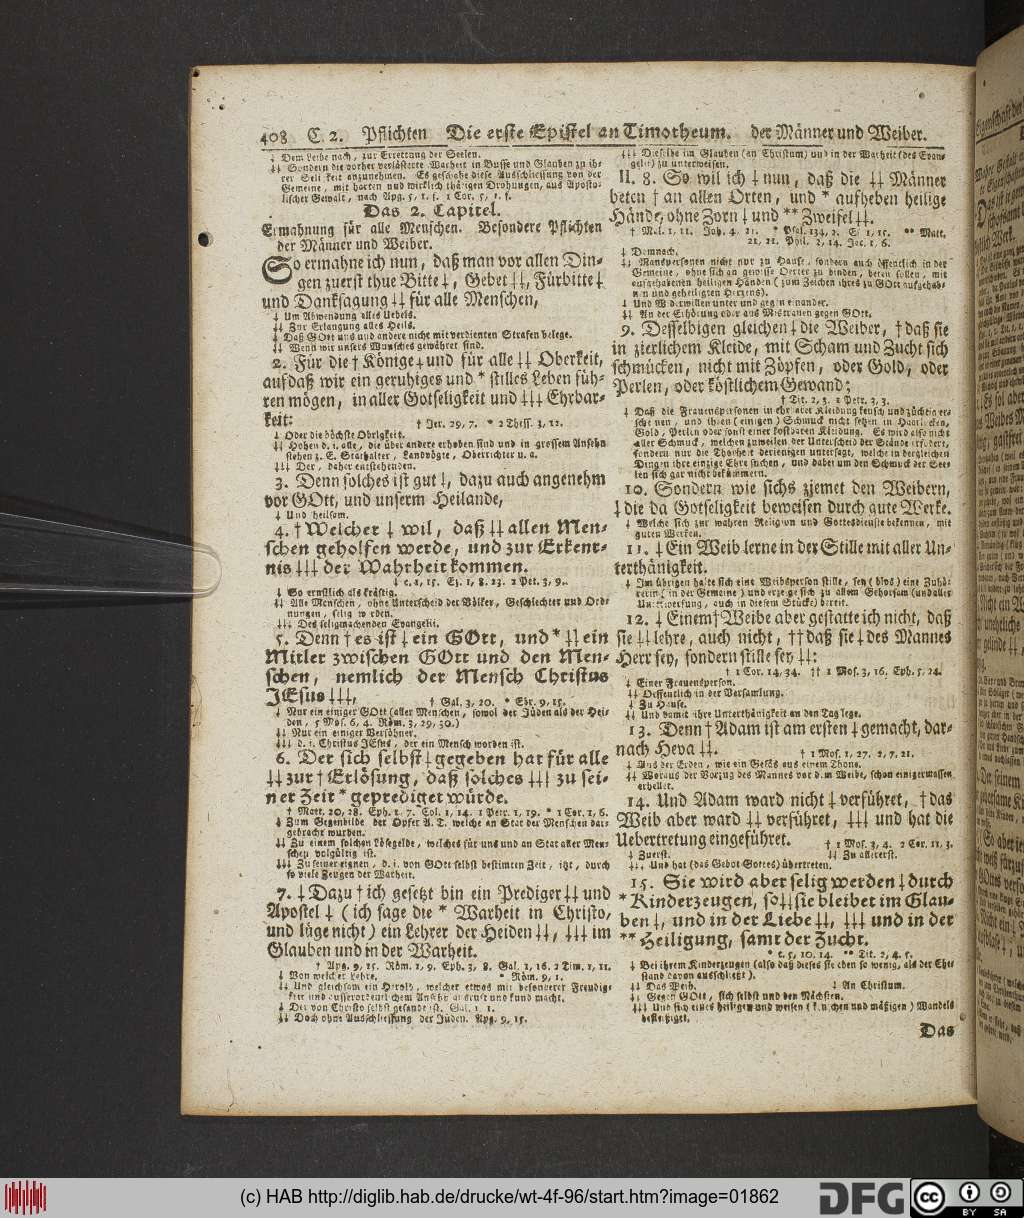 408 C. 2. Pflichten Die erste Epistel an Timotheum. der Männer und Weiber.
⸸ Dem Leibe nach, zur Errettung der Seelen.
Das 2. Capitel.
Ermahnung für alle Menschen. Besondere Pflichten
der Männer und Weiber.
So ermahne ich nun, daß man vor allen Din-
gen zuerst thue Bitte ⸸, Gebet ⸸⸸, Fürbitte ⸸
und Danksagung ⸸⸸ für alle Menschen,
⸸ Um Abwendung alles Uebels.
⸸⸸ Zur Erlangung alles Heils.
⸸ Daß GOtt uns und andere nicht mit verdienten Strafen belege.
⸸⸸ Wenn wir unsers Wunsches gewähret sind.
2. Für die † Könige ⸸ und für alle ⸸⸸ Oberkeit,
aufdaß wir ein geruhiges und * stilles Leben füh-
ren mögen, in aller Gotseligkeit und ⸸⸸⸸ Ehrbar-
keit:
† Jer. 29, 7. * 2 Thess. 3, 12.
⸸ Oder die höchste Obrigkeit.
⸸⸸ Hohen d. i. alle, die über andere erhoben sind und in grossem Ansehn
stehen z. E. Stathalter, Landvögte, Oberrichter u. a.
⸸⸸⸸ Der, daher entstehenden.
3. Denn solches ist gut ⸸, dazu auch angenehm
vor GOtt, und unserm Heilande,
⸸ Und heilsam.
4. † Welcher ⸸ wil, daß ⸸⸸ allen Men-
schen geholfen werde, und zur Erkent-
nis ⸸⸸⸸ der Wahrheit kommen.
⸸ So ernstlich als kräftig.
⸸⸸ Alle Menschen, ohne Unterscheid der Völker, Geschlechter und Ord-
nungen, selig werden.
⸸⸸⸸ Des seligmachenden Evangelii.
5. Denn † es ist ⸸ ein GOtt, und * ⸸⸸ ein
Mitler zwischen GOtt und den Men-
schen, nemlich der Mensch Christus
JEsus ⸸⸸⸸,
† Gal. 3, 20. * Ebr. 9, 15.
⸸ Nur ein einiger GOtt (aller Menschen, sowol der Jüden als der Hei-
den, 5 Mos. 6, 4. Röm. 3, 29, 30.)
⸸⸸ Nur ein einiger Versöhner.
⸸⸸⸸ d. i. Christus JEsus, der ein Mensch worden ist.
6. Der sich selbst ⸸ gegeben hat für alle
⸸⸸ zur † Erlösung, daß solches ⸸⸸⸸ zu sei-
ner Zeit * geprediget würde.
⸸ Zum Gegenbilde der Opfer A. T. welche an Stat der Menschen dar-
gebracht wurden.
⸸⸸ Zu einem solchen Lösegelde, welches für uns und an Stat aller Men-
schen volgültig ist.
⸸⸸⸸ Zu seiner eignen, d. i. von GOtt selbst bestimten Zeit, itzt, durch
so viele Zeugen der Warheit.
7. ⸸ Dazu † ich gesetzt bin ein Prediger ⸸⸸ und
Apostel ⸸ (ich sage die * Warheit in Christo,
und lüge nicht) ein Lehrer der Heiden ⸸⸸, ⸸⸸⸸ im
Glauben und in der Warheit.
† Apg. 9, 15. Röm. 1, 9. Eph. 3, 8. Gal. 1, 16. 2 Tim. 1, 11.
* Röm. 9, 1.
⸸ Von welcher Lehre.
⸸ Der von Christo selbst gesandt ist. Gal. 1, 1.
⸸⸸ Doch ohne Ausschliessung der Jüden. Apg. 9, 15.
⸸⸸⸸ Dieselbe im Glauben (an Christum) und in der Warheit (des Evan-
gelii) zu unterweisen.
II. 8. So wil ich ⸸ nun, daß die ⸸⸸ Männer
beten † an allen Orten, und * aufheben heilige
Hände, ohne Zorn ⸸ und ** Zweifel ⸸⸸.
† Mal. 1, 11. Joh. 4, 21. * Psal. 134, 2. Es. 1, 15. ** Matt.
21, 21. Phil. 2, 14. Jac. 1, 6.
⸸ Demnach.
⸸⸸ Mansperson​en nicht nur zu Hause, sondern auch öffentlich in der
Gemeine, ohne sich an gewisse Oerter zu binden, beten sollen, mit
aufgehabenen heiligen Händen (zum Zeichen ihres zu GOtt aufgehab-
nen und geheiligten Herzens).
⸸ Und Widerwillen unter und gegen einander.
⸸⸸ An der Erhörung oder aus Mistrauen gegen GOtt.
9. Desselbigen gleichen ⸸ die Weiber, † daß sie
in zierlichem Kleide, mit Scham und Zucht sich
schmücken, nicht mit Zöpfen, oder Gold, oder
Perlen, oder köstlichem Gewand;
† Tit. 2, 3. 1 Petr. 3, 3.
⸸ Daß die Frauenspersonen in ehrbarer Kleidung keusch und züchtig er-
scheinen, und ihren (einigen) Schmuck nicht setzen in Haarlocken,
Gold, Perlen oder sonst einer kostbaren Kleidung. Es wird also nicht
aller Schmuck, welchen zuweilen der Unterscheid der Stände erfodert,
sondern nur die Thorheit derjenigen untersagt, welche in dergleichen
Dingen ihre einzige Ehre suchen, und dabei um den Schmuck der See-
len sich gar nicht bekümmern.
10. Sondern wie sichs ziemet den Weibern,
⸸ die da Gotseligkeit beweisen durch gute Werke.
⸸ Welche sich zur wahren Religion und Gottesdienste bekennen, mit
guten Werken.
11. ⸸ Ein Weib lerne in der Stille mit aller Un-
terthänigkeit.
⸸ Im übrigen halte sich eine Weibsperson stille, sey (blos) eine Zuhö-
rerin (in der Gemeine) und erzeige sich zu allem Gehorsam (und aller
Unterwerfung, auch in diesem Stücke) bereit.
12. ⸸ Einem † Weibe aber gestatte ich nicht, daß
sie ⸸⸸ lehre, auch nicht, †† daß sie ⸸ des Mannes
Herr sey, sondern stille sey ⸸⸸:
† 1 Cor. 14, 34. †† 1 Mos. 3, 16. Eph. 5, 24.
⸸ Einer Frauensperson.
⸸⸸ Oeffentlich in der Versamlung.
⸸ Zu Hause.
⸸⸸ Und damit ihre Unterthänigkeit an den Tag lege.
13. Denn † Adam ist am ersten ⸸ gemacht, dar-
nach Heva ⸸⸸.
† 1 Mos. 1, 27. 2, 7. 21.
⸸ Aus der Erden, wie ein Gefäs aus einem Thone.
⸸⸸ Woraus der Vorzug des Mannes vor dem Weibe, schon einigermassen
erhellet.
14. Und Adam ward nicht ⸸ verführet, † das
Weib aber ward ⸸⸸ verführet, ⸸⸸⸸ und hat die
Uebertretung eingeführet.
† 1 Mos. 3, 4. 2 Cor. 11, 3.
⸸ Zuerst. ⸸⸸ Zu allererst.
⸸⸸⸸ Und hat (das Gebot Gottes) übertreten.
15. Sie wird aber selig werden ⸸ durch
* Kinderzeugen, so ⸸⸸ sie bleibet im Glau-
ben ⸸, und in der Liebe ⸸⸸, ⸸⸸⸸ und in der
** Heiligung, samt der Zucht.
* c. 5, 10. 14. ** Tit. 2, 4. 5.
⸸ Bei ihrem Kinderzeugen (also daß dieses sie eben so wenig, als der Ehe-
stand davon ausschliesst).
⸸⸸ Das Weib. ⸸ An Christum.
⸸⸸ Gegen GOtt, sich selbst und den Nächsten.
⸸⸸⸸ Und sich eines heiligen und weisen (keuschen und mäßigen) Wandels
befleißiget.
Das
(c) HAB http://diglib.hab.de/drucke/wt-4f-96/start.htm?image=01862
DFG
cc BY SA